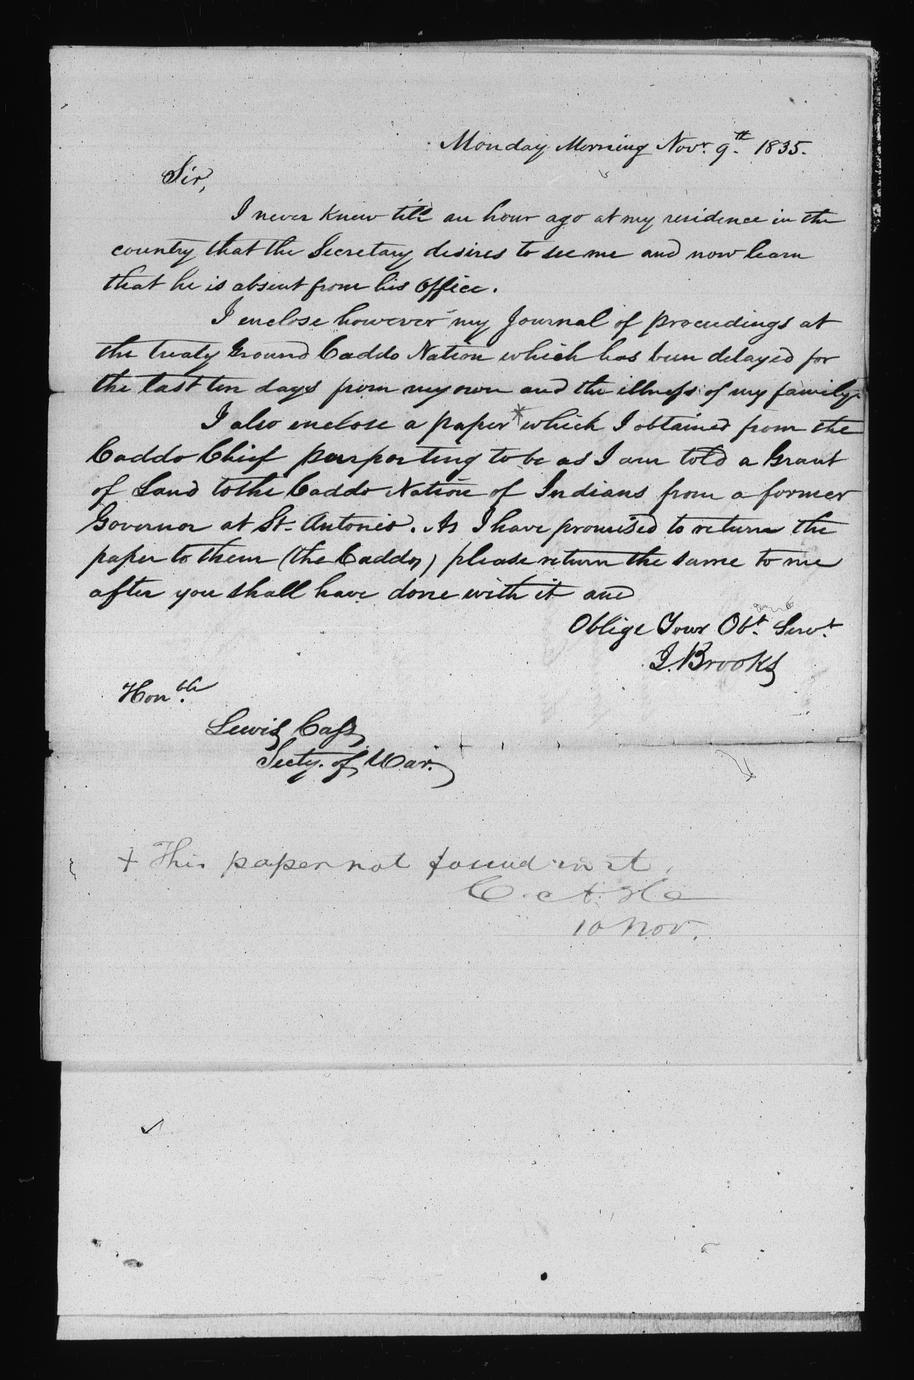 Monday Morning Novr. 9th. 1835.
Sir,
I never knew till an hour ago at my residence in the
country that the Secretary desires to see me and now learn
that he is absent from his Office.
I enclose however my Journal of proceedings at
the treaty Ground Caddo Nation which has been delayed for
the last ten days from my own and the illness of my family.
I also enclose a paper * which I obtained from the
Caddo Chief purporting to be as I am told a Grant
of Land to the Caddo Nation of Indians from a former
Governor at St. Antonio. As I have promised to return the
paper to them (the Caddos) please return the same to me
after you shall have done with it and
Oblige Your Obt. Servt.
J. Brooks
Honble.
Lewis Cass,
Secty. of War.
+ This paper not found in it.
10 Nov.